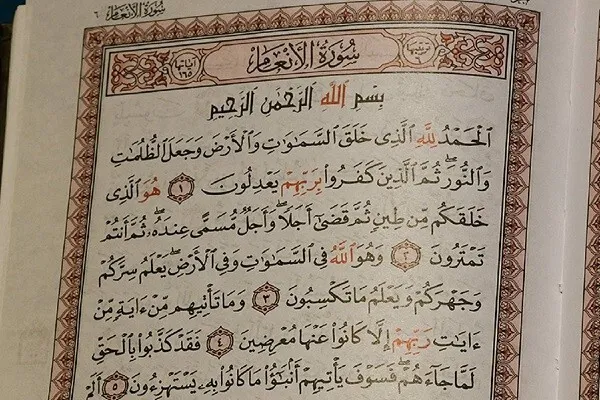 سورة الأنعام ٦
ترتيبها ٦ سُورَةُ الأَنْعَام آياتها ١٦٥
بِسْمِ اللَّهِ الرَّحْمَٰنِ الرَّحِيمِ
الْحَمْدُ لِلَّهِ الَّذِى خَلَقَ السَّمَٰوَٰتِ وَالْأَرْضَ وَجَعَلَ الظُّلُمَٰتِ
وَالنُّورَ ۖ ثُمَّ الَّذِينَ كَفَرُوا۟ بِرَبِّهِمْ يَعْدِلُونَ ١ هُوَ الَّذِى
خَلَقَكُم مِّن طِينٍ ثُمَّ قَضَىٰٓ أَجَلًا ۖ وَأَجَلٌ مُّسَمًّى عِندَهُۥ ۖ ثُمَّ أَنتُمْ
تَمْتَرُونَ ٢ وَهُوَ اللَّهُ فِى السَّمَٰوَٰتِ وَفِى الْأَرْضِ ۖ يَعْلَمُ سِرَّكُمْ
وَجَهْرَكُمْ وَيَعْلَمُ مَا تَكْسِبُونَ ٣ وَمَا تَأْتِيهِم مِّنْ ءَايَةٍ مِّنْ
ءَايَٰتِ رَبِّهِمْ إِلَّا كَانُوا۟ عَنْهَا مُعْرِضِينَ ٤ فَقَدْ كَذَّبُوا۟ بِالْحَقِّ
لَمَّا جَآءَهُمْ ۖ فَسَوْفَ يَأْتِيهِمْ أَنۢبَٰٓؤُا۟ مَا كَانُوا۟ بِهِۦ يَسْتَهْزِءُونَ ٥ أَلَمْ